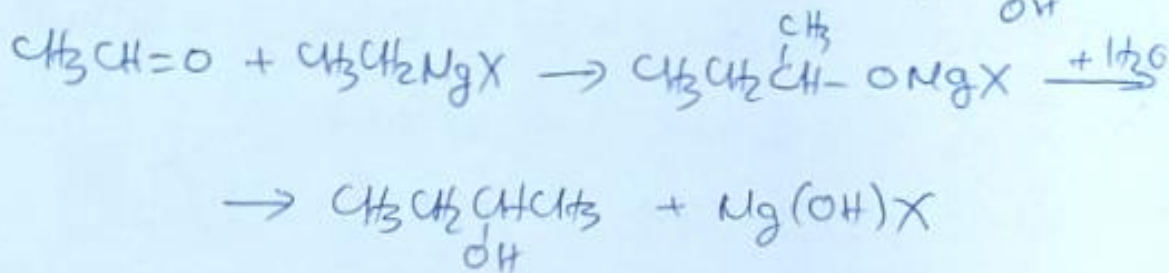 OH
CH3
CH3CH=O + CH3CH2MgX → CH3CH2CH- OMgX + H2O →
→ CH3CH2CHCH3 + Mg(OH)X
OH